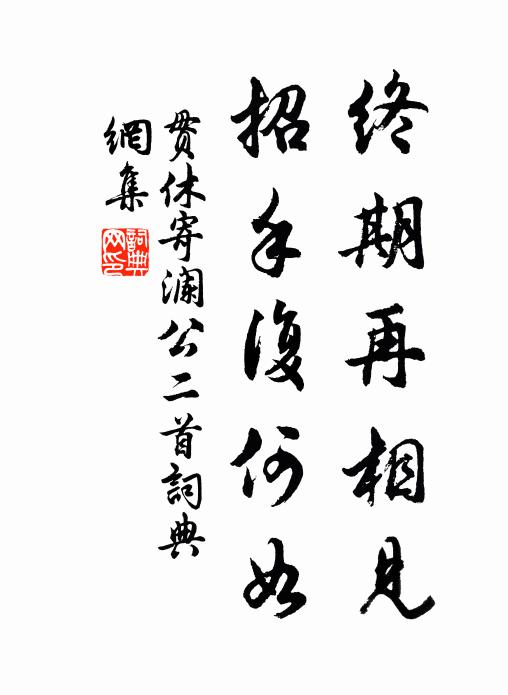 終期再相見
招手復何如
貫休寄瀾公二首詞典
網集
詞典
网印